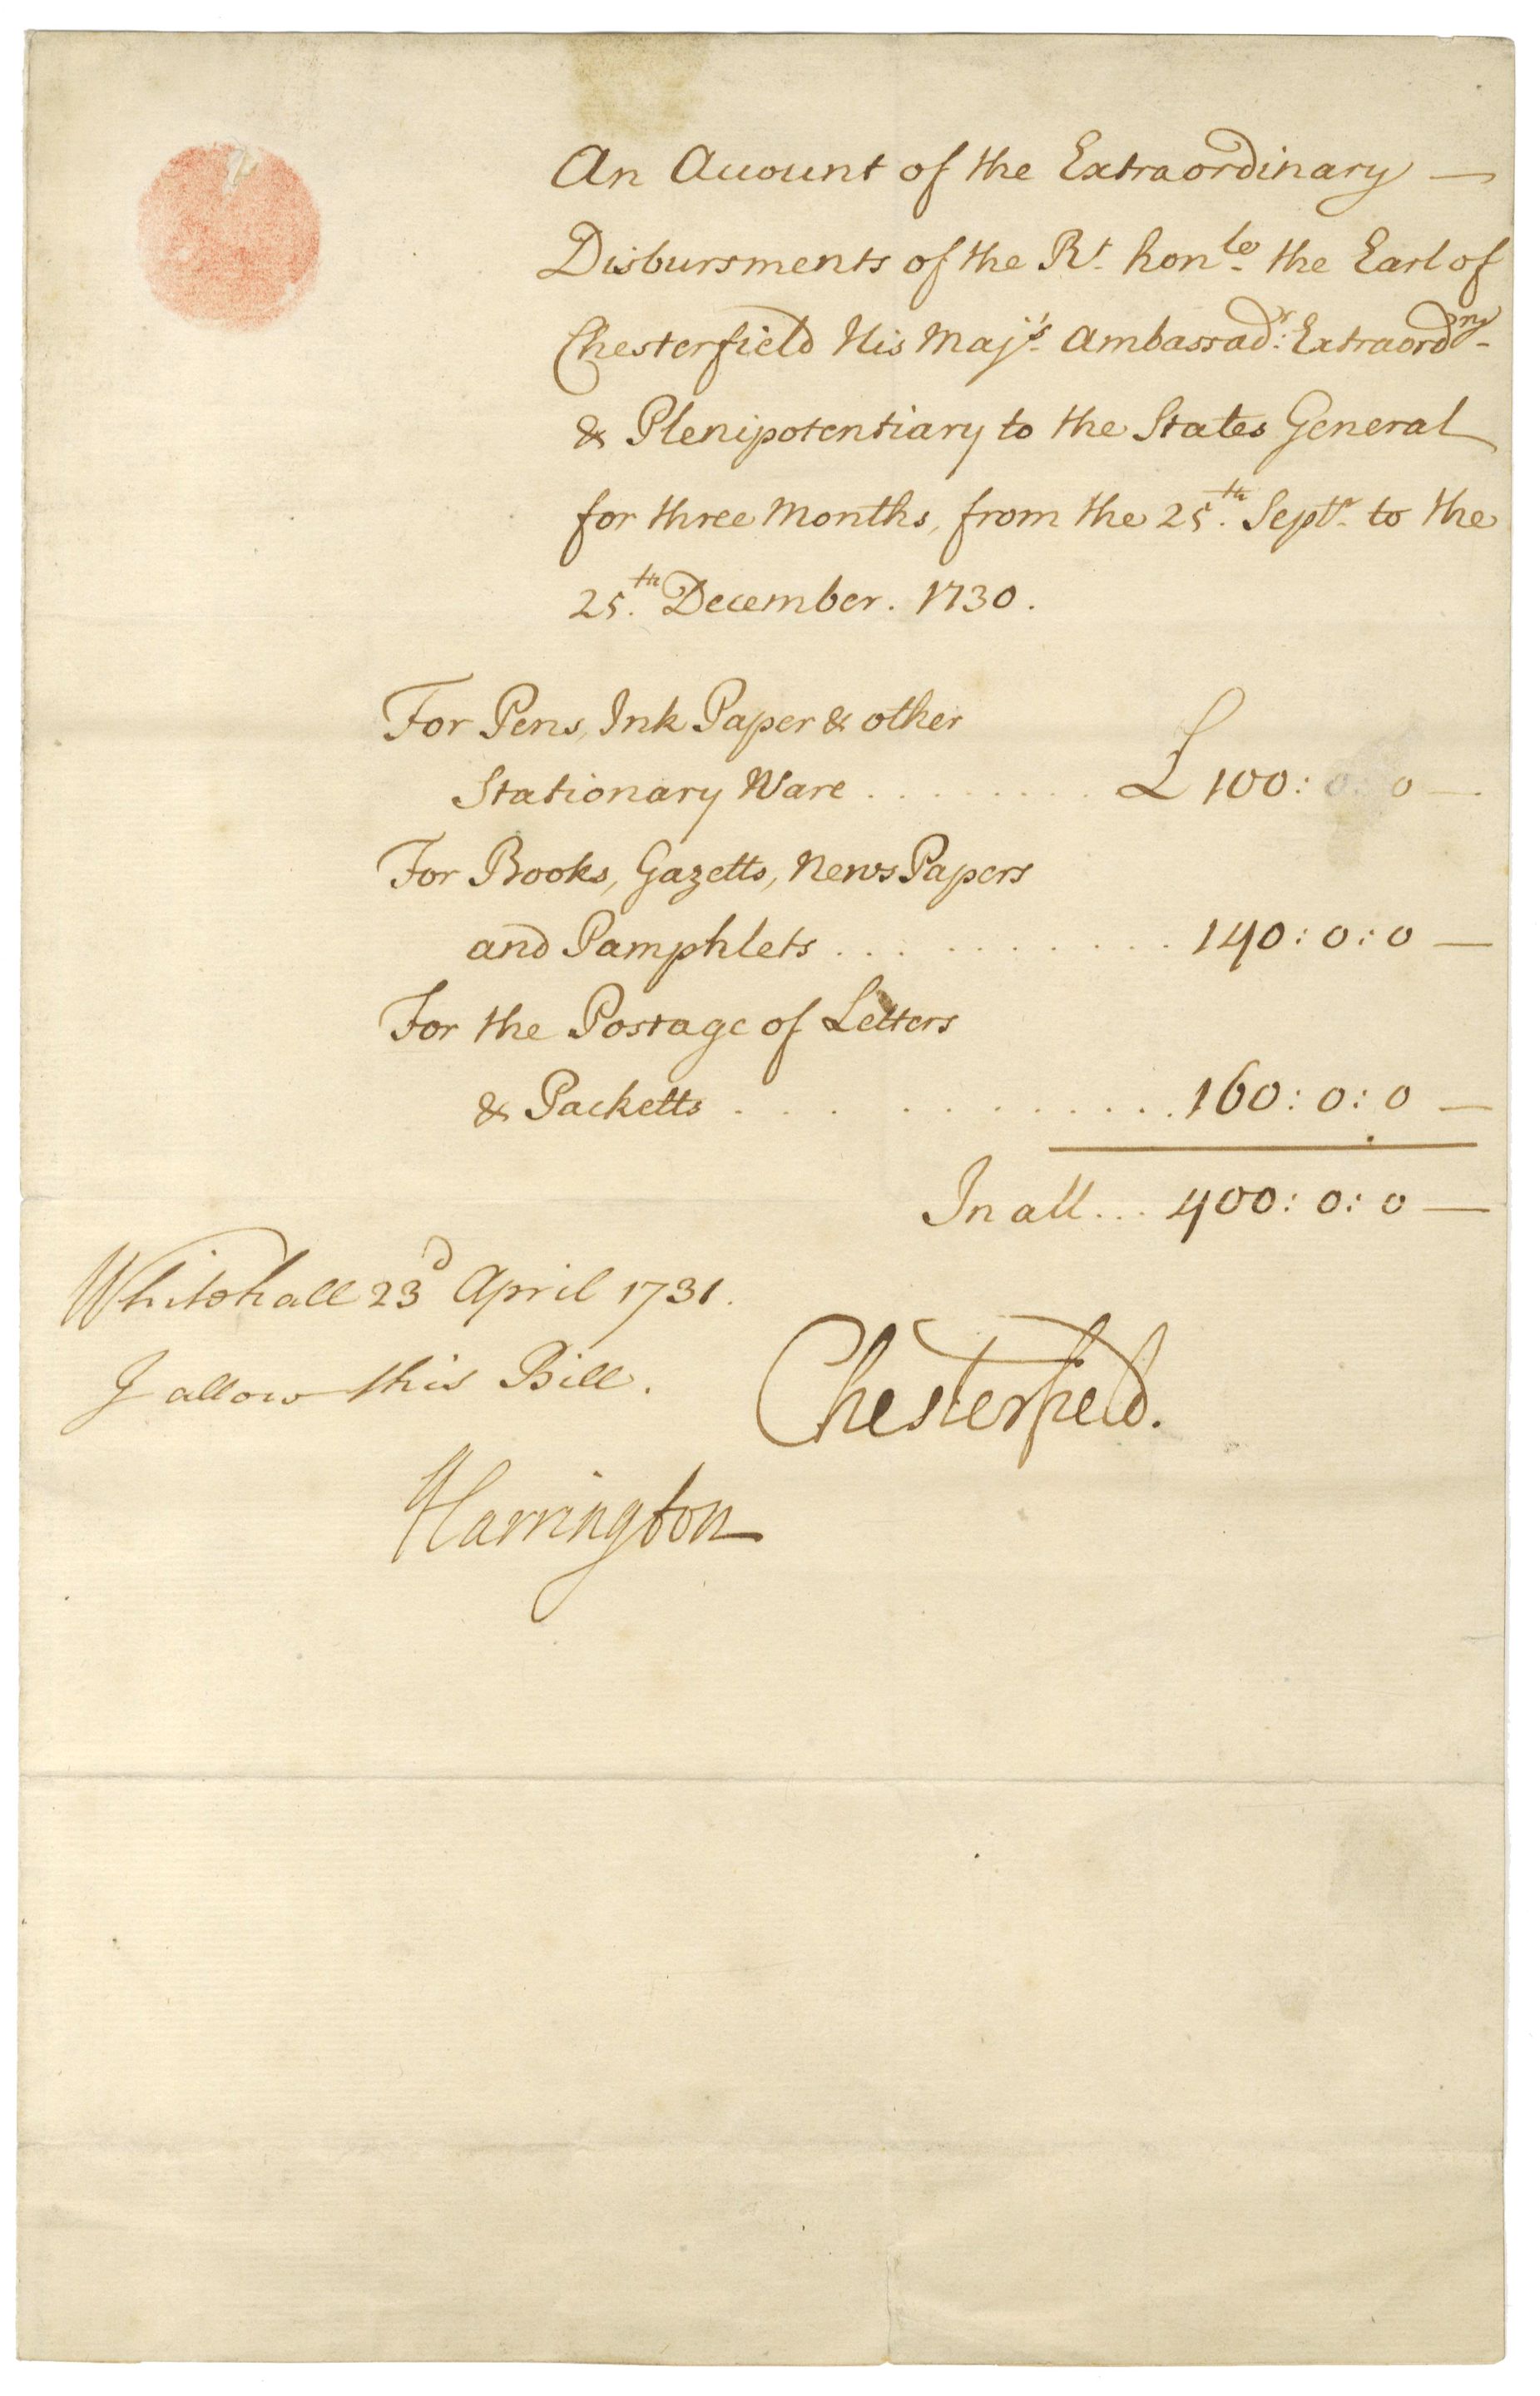 An Account of the Extraordinary —
Disbursments of the Rt. honle. the Earl of
Chesterfield His Maj's. Ambassadr: Extraordry.
& Plenipotentiary to the States General
for three Months, from the 25th. Septr. to the
25th. December. 1730.
For Pens, Ink Paper & other
Stationary Ware . . . . . . . . £ 100: 0: 0 —
For Books, Gazetts, News Papers
and Pamphlets . . . . . . . . . . 140: 0: 0 —
For the Postage of Letters
& Packetts . . . . . . . . . . . . 160: 0: 0 —
In all . . . 400: 0: 0 —
Whitehall 23d April 1731.
I allow this Bill.
Chesterfield.
Harrington